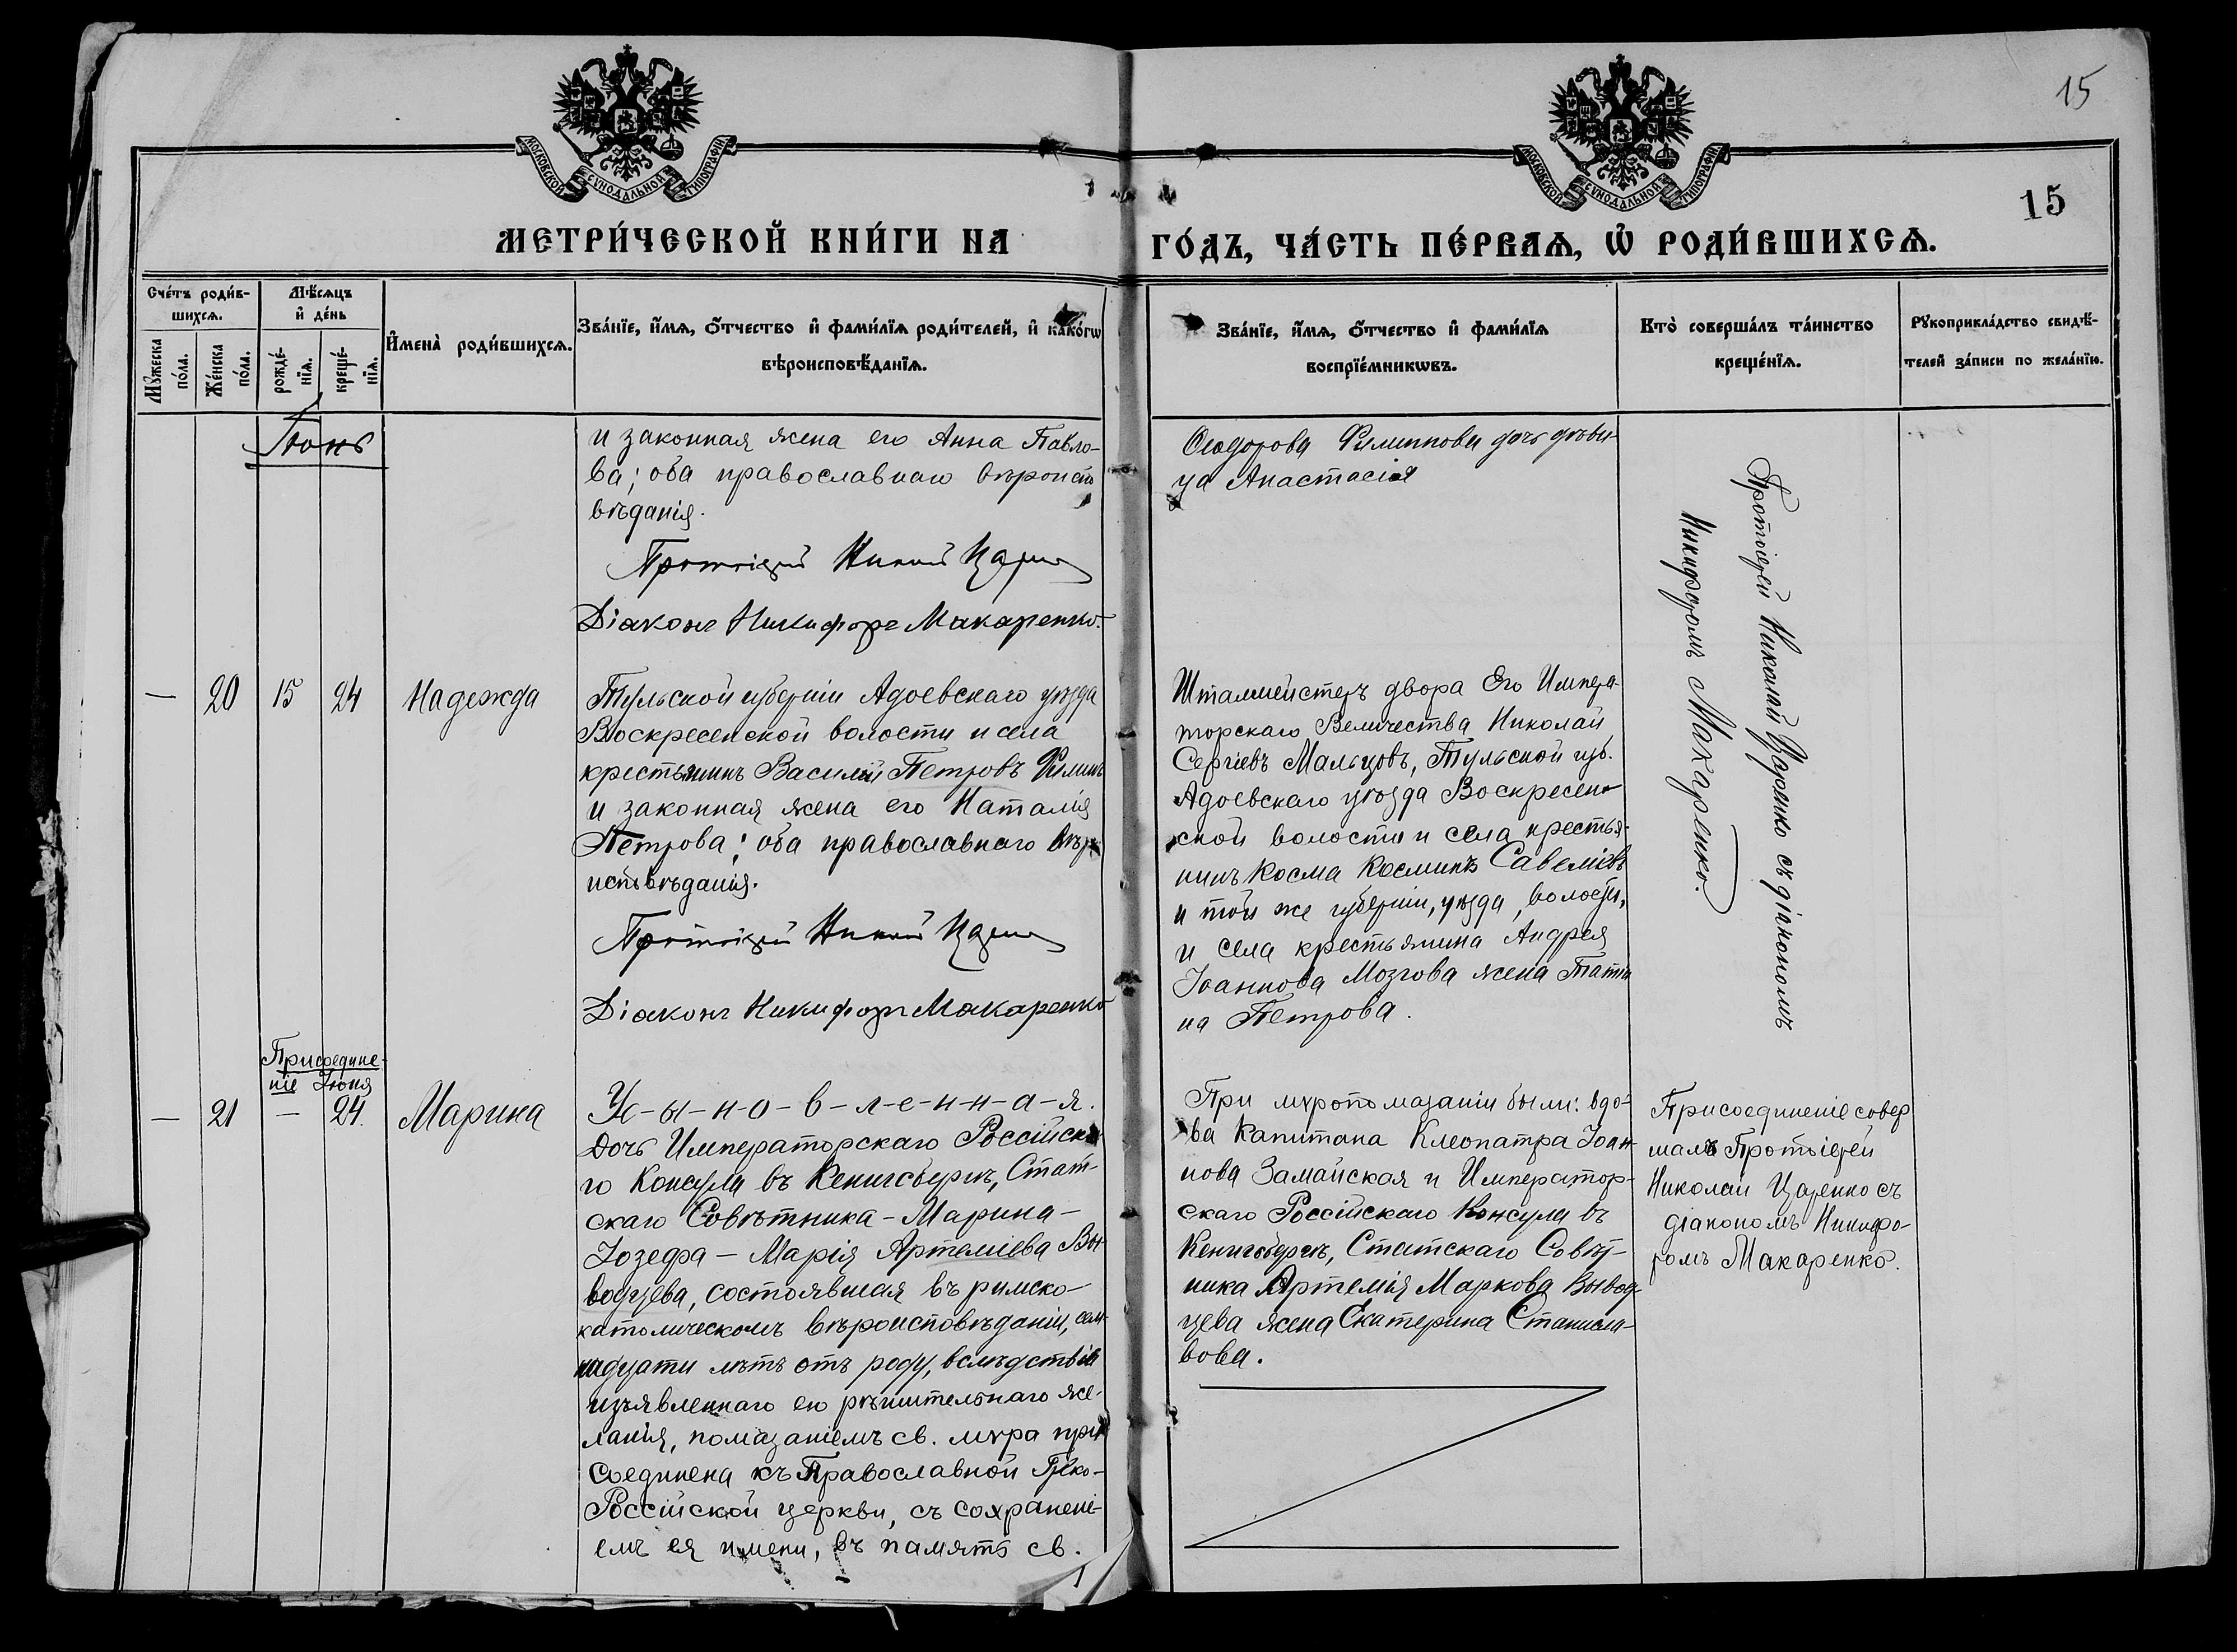 15
МОСКОВСКОЙ СѴНОДАЛЬНОЙ ТИПОГРАФІИ
МОСКОВСКОЙ СѴНОДАЛЬНОЙ ТИПОГРАФІИ
15
МЕТРИ́ЧЕСКОЙ КНИ́ГИ НА
ГО́ДЪ, ЧА́СТЬ ПЕ́РВАѦ, Ѡ҆ РОДИ́ВШИХСѦ.
Сче́тъ роди́в-
шихсѧ.
Мꙋ́жеска
по́ла.
Же́нска
по́ла.
Мѣ́сѧцъ
и҆ де́нь
рожде́-
нїѧ.
креще́-
нїѧ.
И҆мена̀ роди́вшихсѧ.
Зва́нїе, и҆́мѧ, ѻ҆́тчество и҆ фами́лїѧ роди́телей, и҆ како́гѡ
вѣроисповѣ́данїѧ.
Зва́нїе, и҆́мѧ, ѻ҆́тчество и҆ фами́лїѧ
воспрїе́мникѡвъ.
Кто̀ соверша́лъ та́инство
креще́нїѧ.
Рꙋкоприкла́дство свидѣ́-
телей за́писи по жела́нїю.
Іюнь
и законная жена его Анна Павло-
ва; оба православнаго вѣроиспо
вѣданія.
Протоіерей Николай Царенко
Діаконъ Никифоръ Макаренко.
Ѳеодорова Филиппова дочь дѣви-
ца Анастасія
Протоіерей Николай Царенко съ діакономъ
Никифоромъ Макаренко.
— 20 15 24 Надежда
Тульской губерніи Адоевскаго уѣзда
Воскресенской волости и села
крестьянинъ Василій Петровъ Филинъ
и законная жена его Наталія
Петрова; оба православнаго вѣро
исповѣданія.
Протоіерей Николай Царенко
Діаконъ Никифоръ Макаренко
Шталмейстеръ двора Его Импера-
торскаго Величества Николай
Сергіевъ Мальцовъ, Тульской губ.
Адоевскаго уѣзда Воскресен-
ской волости и села крестья-
нинъ Косма Косминъ Савеліевъ
и той же губерніи, уѣзда, волости,
и села крестьянина Андрея
Іоаннова Мозгова жена Татія
на Петрова.
Присоедине-
ніе Іюня
— 21 — 24. Марина
У-с-ы-н-о-в-л-е-н-н-а-я.
Дочь Императорскаго Россійска
го Консула въ Кенигсбергѣ, Стат-
скаго Совѣтника – Марина –
Іозефа – Марія Артеміева Вы-
водцева, состоявшая въ римско-
католическомъ вѣроисповѣданіи, сем-
надцати лѣтъ отъ роду, вслѣдствіе
изъявленнаго ею рѣшительнаго же-
ланія, помазаніемъ св. мѵра при
соединена къ Православной Греко-
Россійской церкви, съ сохранені-
емъ ея имени, въ память св.
При мѵропомазаніи были: вдо-
ва Капитана Клеопатра Іоан-
нова Замайская и Император-
скаго Россійскаго Консула въ
Кенигсбергѣ, Статскаго Совѣт-
ника Артемія Маркова Вывод-
цева жена Екатерина Станисла-
вова.
Присоединеніе совер
шалъ Протоіерей
Николай Царенко съ
діакономъ Никифо-
ромъ Макаренко.